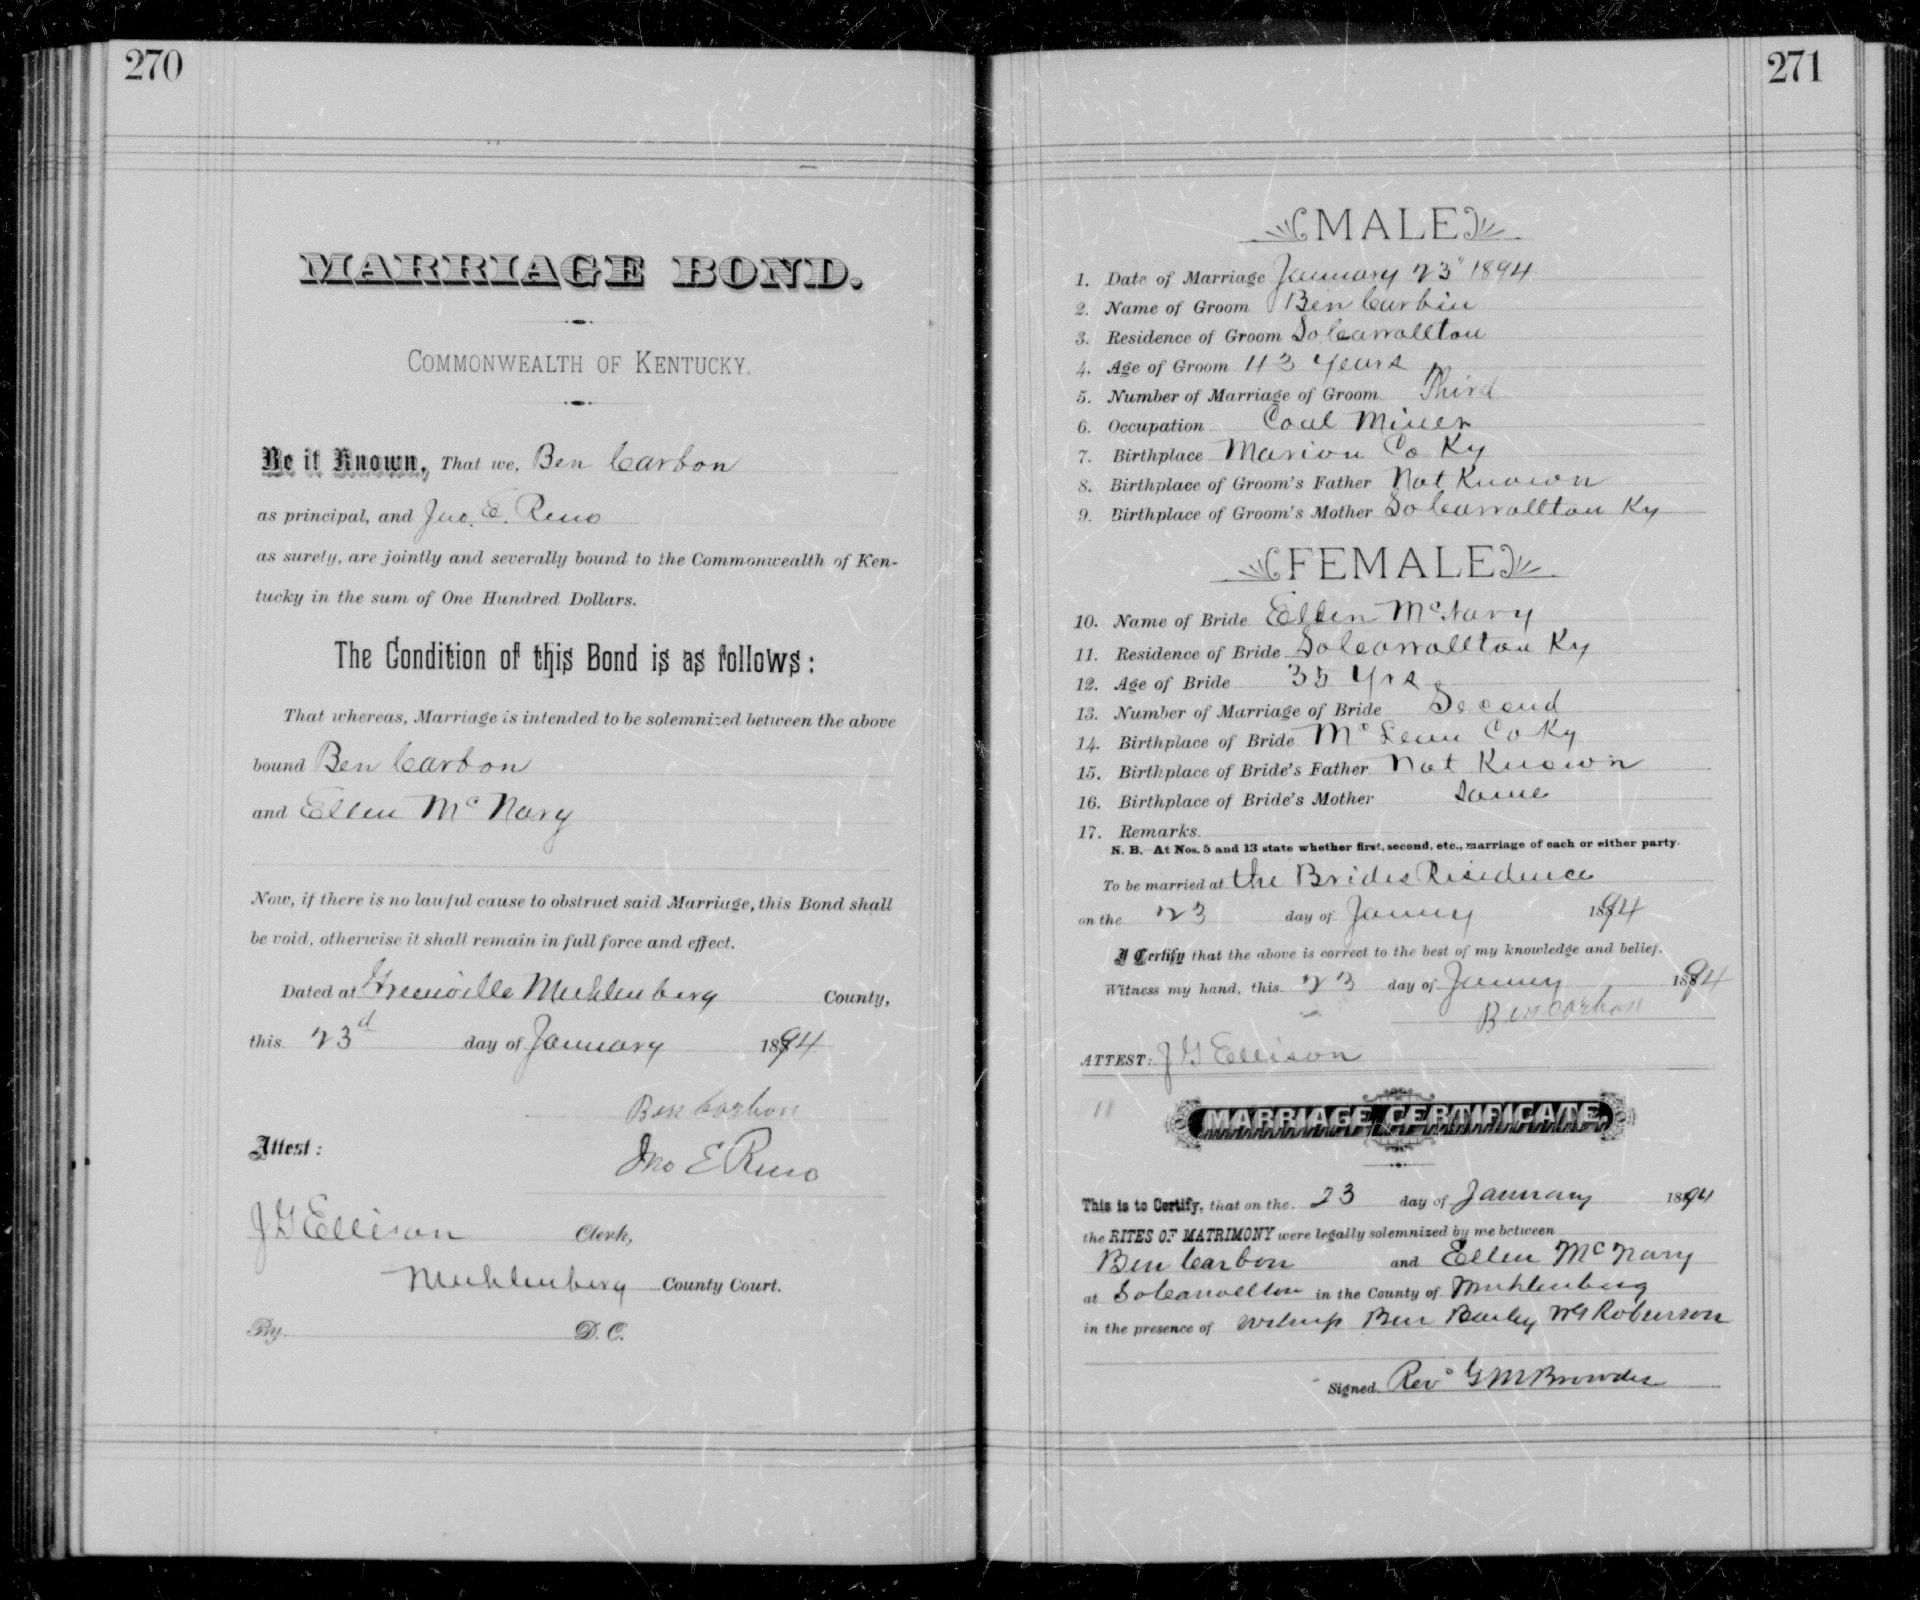 270
MARRIAGE BOND.
COMMONWEALTH OF KENTUCKY.
Be it Known, That we, Ben Carbon
as principal, and Jno. E. Reno
as surety, are jointly and severally bound to the Commonwealth of Ken-
tucky in the sum of One Hundred Dollars.
The Condition of this Bond is as follows:
That whereas, Marriage is intended to be solemnized between the above
bound Ben Carbon
and Ellen McNary
Now, if there is no lawful cause to obstruct said Marriage, this Bond shall
be void, otherwise it shall remain in full force and effect.
Dated at Greenville Muhlenberg County,
this 23d day of January 1894
Ben Carbon
Attest:
Jno E Reno
J G Ellison Clerk,
Muhlenberg County Court.
By D. C.
271
MALE
1. Date of Marriage January 23" 1894
2. Name of Groom Ben Carbin
3. Residence of Groom So Carrollton
4. Age of Groom 43 Years
5. Number of Marriage of Groom Third
6. Occupation Coal Miner
7. Birthplace Marion Co Ky
8. Birthplace of Groom's Father Not Known
9. Birthplace of Groom's Mother So Carrollton Ky
FEMALE
10. Name of Bride Ellen McNary
11. Residence of Bride So Carrollton Ky
12. Age of Bride 35 Yrs
13. Number of Marriage of Bride Second
14. Birthplace of Bride McLean Co Ky
15. Birthplace of Bride's Father Not Known
16. Birthplace of Bride's Mother Same
17. Remarks.
N. B. At Nos. 5 and 13 state whether first, second, etc., marriage of each or either party.
To be married at the Brides Residence
on the 23 day of Januy 1894
I Certify that the above is correct to the best of my knowledge and belief.
Witness my hand, this 23 day of Januy 1894
Ben Carbon
ATTEST: J G Ellison
11
MARRIAGE CERTIFICATE.
This is to Certify, that on the 23 day of January 1894
the RITES OF MATRIMONY were legally solemnized by me between
Ben Carbon and Ellen McNary
at So Carrollton in the County of Muhlenberg
in the presence of Ben Bailey WG Roberson
Signed. Rev. G M Browder